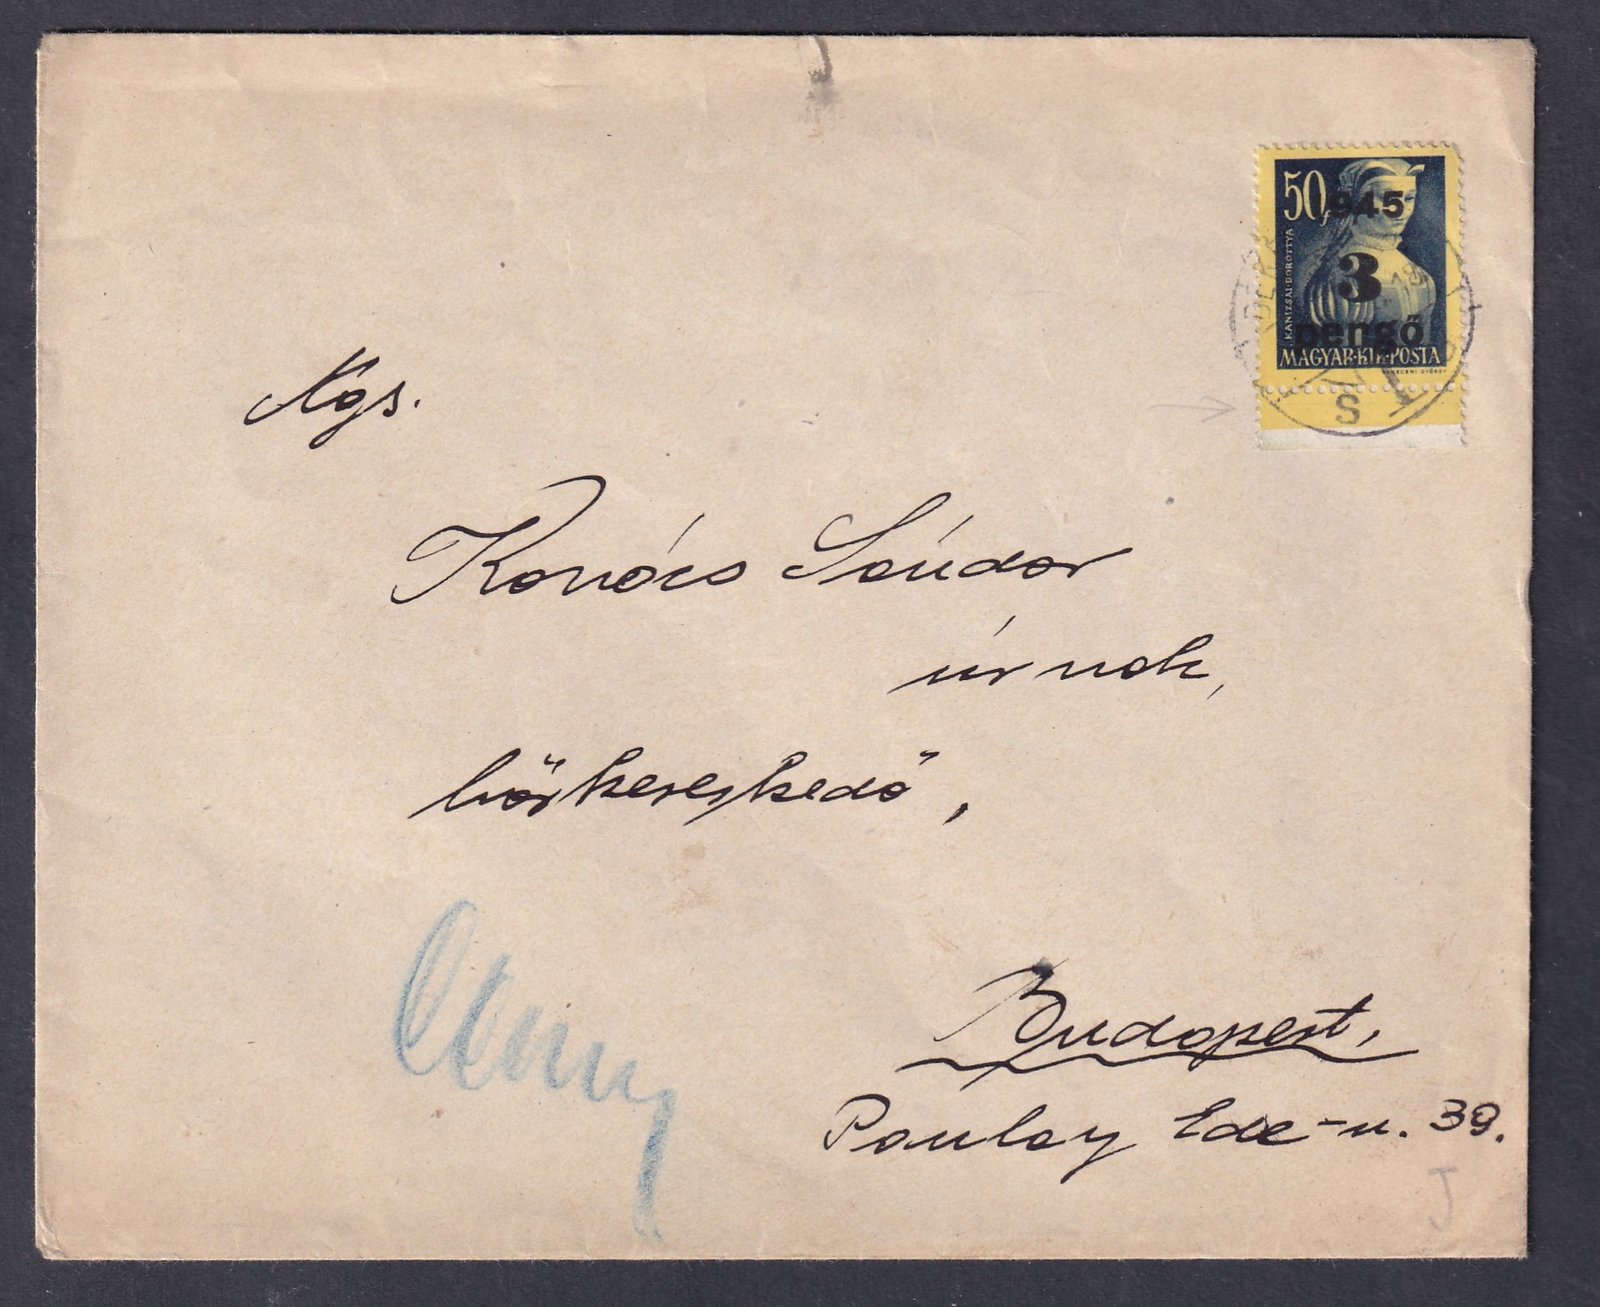 50f
945
3
pengő
KANIZSAI·DOROTTYA
MAGYAR·KIR·POSTA
18
S
Ngs.
Kovács Sándor
úrnak,
bőrkereskedő,
Budapest,
Paulay Ede-u. 39.
J